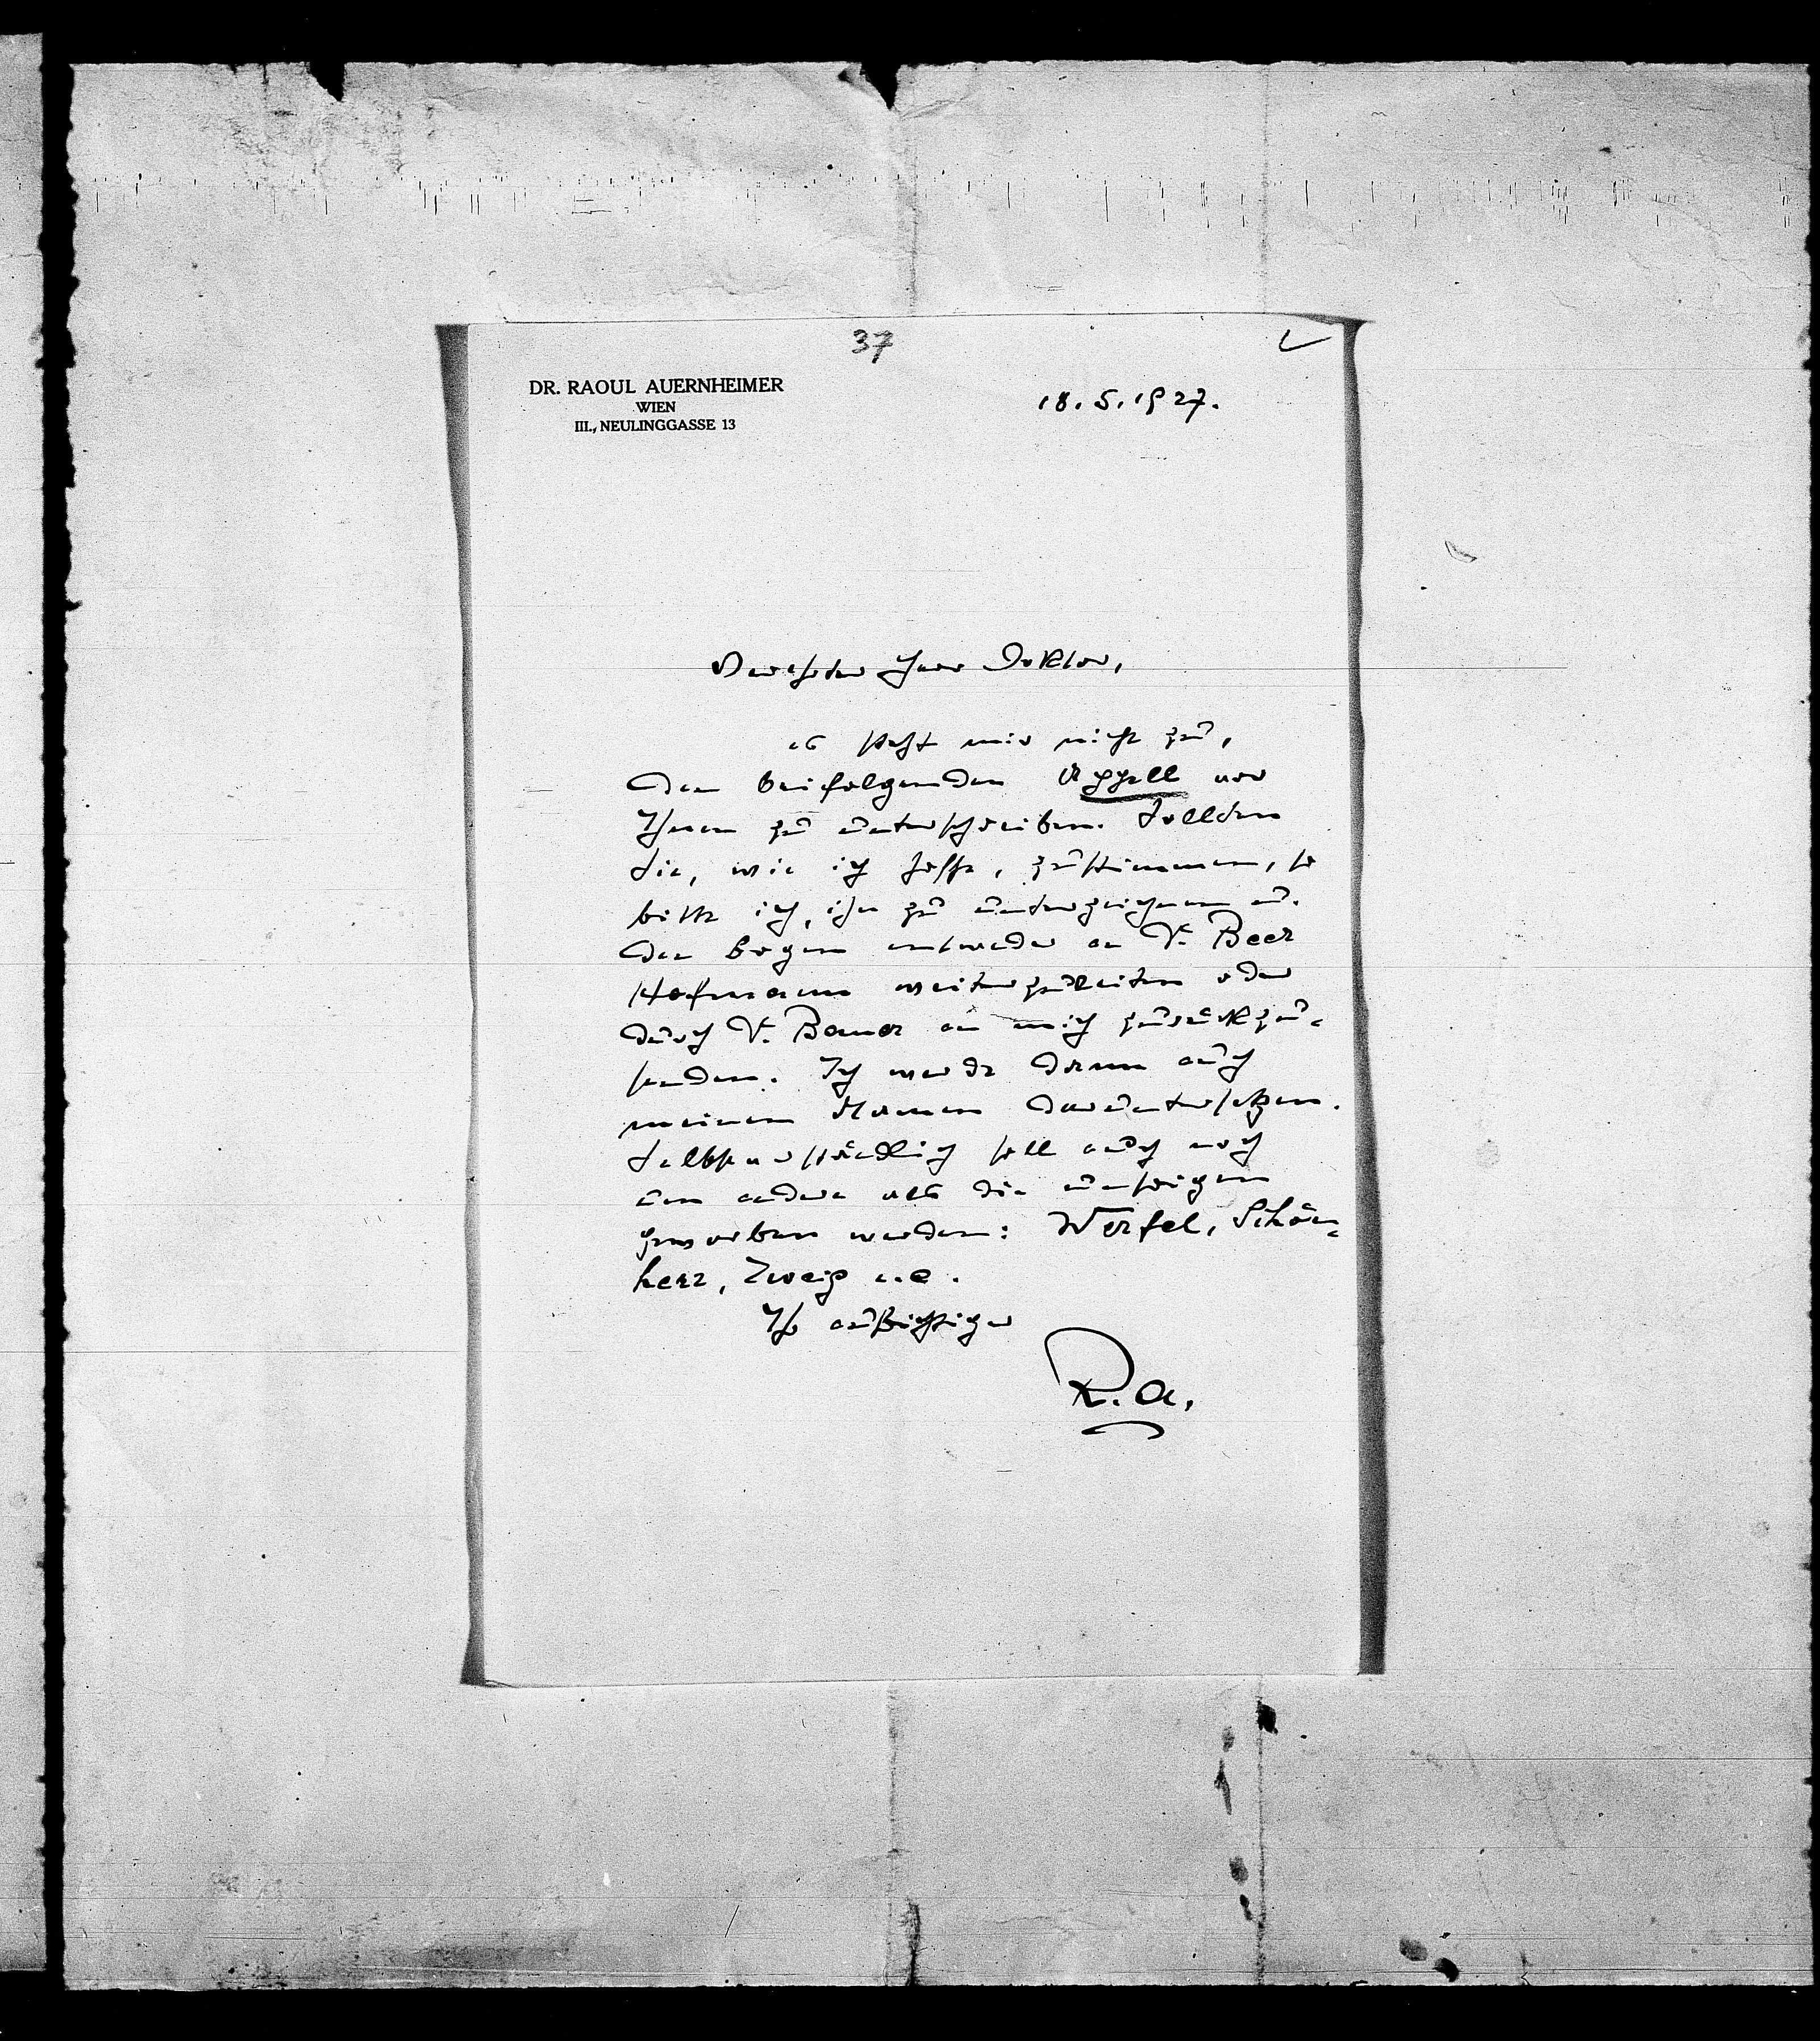 37
DR. RAOUL AUERNHEIMER
WIEN
III., NEULINGGASSE 13
18.5.1927.
Verehrter Herr Doktor,
es steht mir nicht zu,
den beifolgenden Appell vor
Ihnen zu unterschreiben. Sollten
Sie, wie ich hoffe, zustimmen, so
bitte ich, ihn zu unterzeichnen u.
den Bogen entweder an Beer
Hofmann weiterzuleiten oder
durch an mich zurückzu-
senden. Ich werde dann auch
meinen Namen daruntersetzen.
Selbstverständlich soll auch noch
um andere als die unsrigen
geworben werden: Werfel, Schön-
herr, Zweig u.a.
Ihr aufrichtiger
R.A.